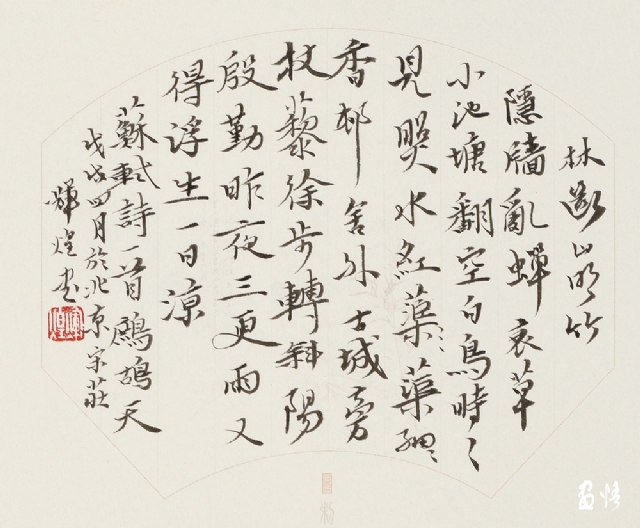 林斷山明竹
隱牆亂蟬衰草
小池塘翻空白鳥時〻
見照水紅蕖蕖細〻
香邨舍外古城旁
杖藜徐步轉斜陽
殷勤昨夜三更雨又
得浮生一日涼
蘇軾詩一首鷓鴣天
戊戌四月於北京宋莊
輝煌書